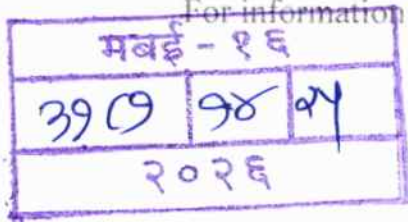 For information
मबई - १६
३१७ १४ २५
२०२६